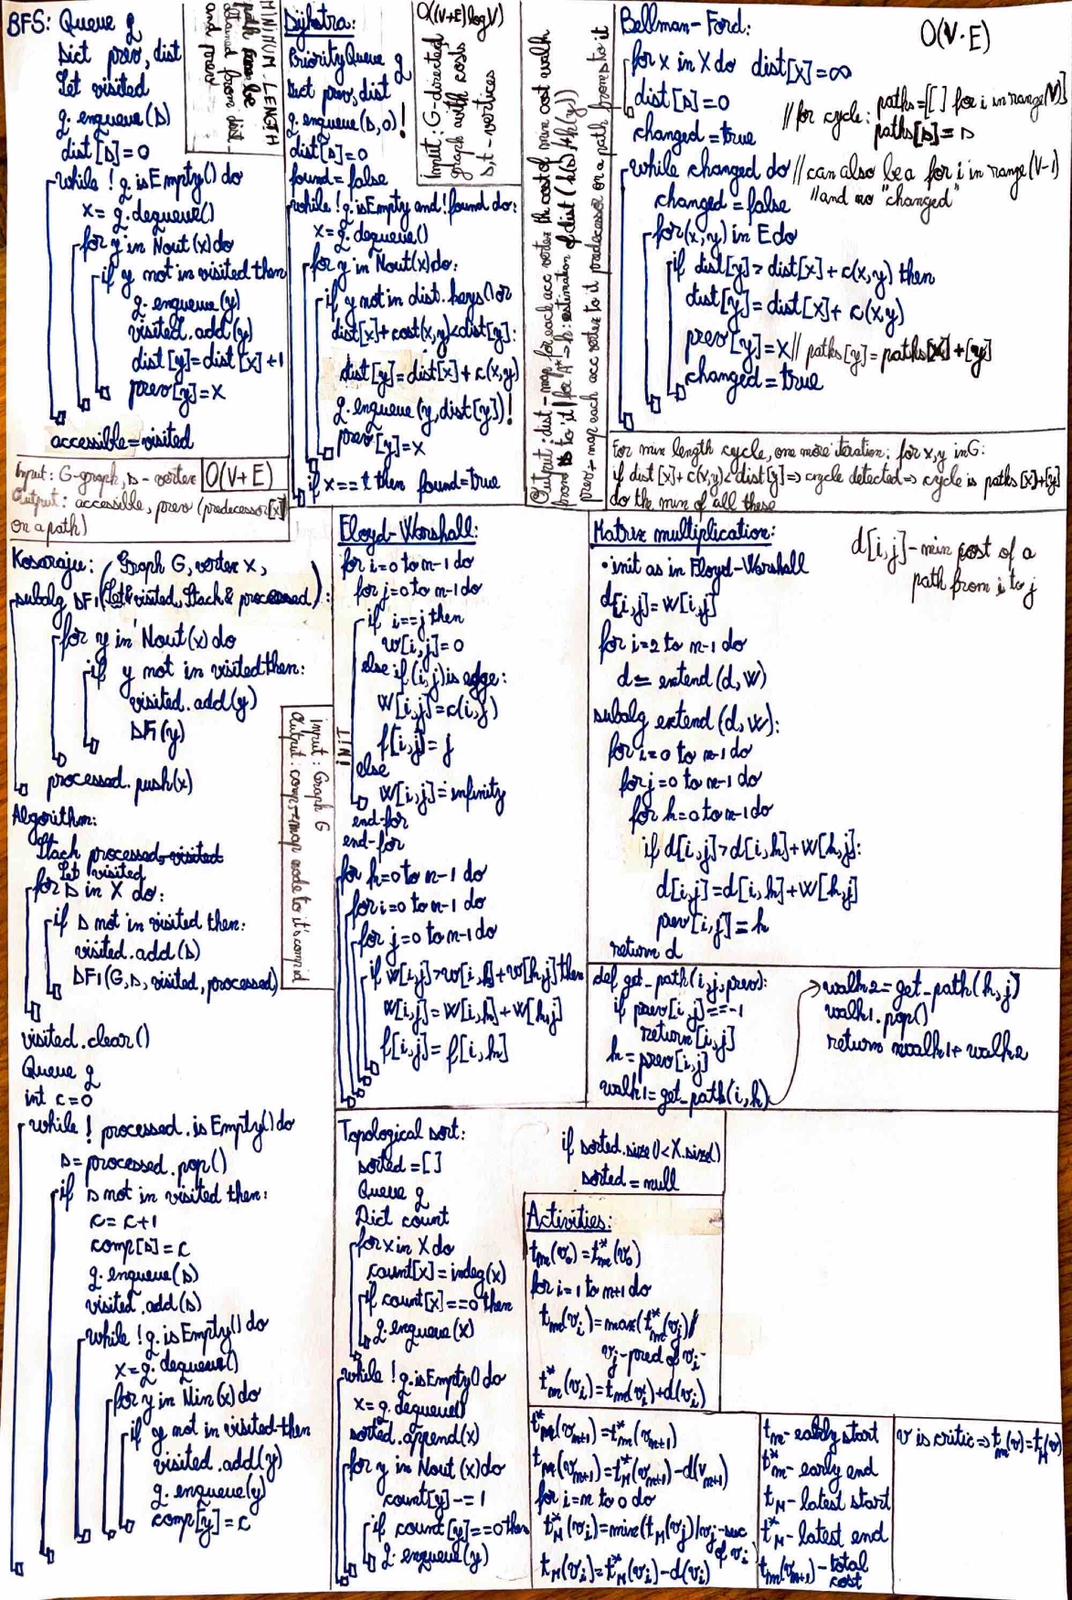 BFS: Queue q
Dict prev, dist
Set visited
q.enqueue(s)
dist[s]=0
while !q.isEmpty() do
x=q.dequeue()
for y in Nout(x) do
if y not in visited then
q.enqueue(y)
visited.add(y)
dist[y]=dist[x]+1
prev[y]=x
accessible=visited
MINIMUM LENGTH
path can be
obtained from dist
and prev
Input: G-graph, s-vertex
O(V+E)
Output: accessible, prev (predecessor[x]
on a path)
Dijkstra:
PriorityQueue q
Dict prev, dist
q.enqueue(s,0)!
dist[s]=0
found=false
while !q.isEmpty and !found do:
x=q.dequeue()
for y in Nout(x) do:
if y not in dist.keys() or
dist[x]+cost(x,y)<dist[y]:
dist[y]=dist[x]+c(x,y)
q.enqueue(y,dist[y])!
prev[y]=x
if x==t then found=true
O((V+E)logV)
Input: G-directed
graph with costs
s,t-vertices
Output: dist-map for each acc vertex the cost of min cost walk
from s to it // for A* => h: estimation of dist (h(s)+h(y))
prev-map each acc vertex to it predecessor on a path from s to it
Bellman-Ford:
O(V·E)
for x in X do dist[x]=∞
dist[s]=0
changed=true
// for cycle: paths=[ ] for i in range(V)]
paths[s]=s
while changed do // can also be a for i in range(V-1)
changed=false // and no "changed"
for(x,y) in E do
if dist[y]>dist[x]+c(x,y) then
dist[y]=dist[x]+c(x,y)
prev[y]=x // paths[y]=paths[x]+[y]
changed=true
For min length cycle, one more iteration: for x,y in G:
if dist[x]+c(x,y)<dist[y]=>cycle detected=>cycle is paths[x]+[y]
do the min of all these
Kosaraju: (Graph G, vertex x,
subalg DF1(Set& visited, Stack& processed):
for y in Nout(x) do
if y not in visited then:
visited.add(y)
DF1(y)
processed.push(x)
Algorithm:
Stack processed visited
Set visited
for s in X do:
if s not in visited then:
visited.add(s)
DF1(G,s,visited,processed)
visited.clear()
Queue q
int c=0
while ! processed.isEmpty() do
s=processed.pop()
if s not in visited then:
c=c+1
comp[s]=c
q.enqueue(s)
visited.add(s)
while !q.isEmpty() do
x=q.dequeue()
for y in Nin(x) do
if y not in visited then
visited.add(y)
q.enqueue(y)
comp[y]=c
Input: Graph G
Output: comps=map node to it's comp id
Floyd-Warshall:
for i=0 to n-1 do
for j=0 to n-1 do
if i==j then
w[i,j]=0
else if (i,j) is edge:
W[i,j]=c(i,j)
f[i,j]=j
else
W[i,j]=infinity
end-for
end-for
INIT
for k=0 to n-1 do
for i=0 to n-1 do
for j=0 to n-1 do
if w[i,j]>w[i,k]+w[k,j] then
W[i,j]=W[i,k]+W[k,j]
f[i,j]=f[i,k]
Matrix multiplication:
•init as in Floyd-Warshall
d[i,j]=W[i,j]
d[i,j]-min cost of a
path from i to j
for i=2 to n-1 do
d= extend(d,W)
subalg extend(d,W):
for i=0 to n-1 do
for j=0 to n-1 do
for k=0 to n-1 do
if d[i,j]>d[i,k]+W[k,j]:
d[i,j]=d[i,k]+W[k,j]
prev[i,j]=k
return d
def get_path(i,j,prev):
if prev[i,j]==-1
return[i,j]
k=prev[i,j]
walk1=get_path(i,k)
walk2=get_path(k,j)
walk1.pop()
return walk1+walk2
Topological sort:
sorted=[]
Queue q
Dict count
for x in X do
count[x]=indeg(x)
if count[x]==0 then
q.enqueue(x)
while !q.isEmpty() do
x=q.dequeue()
sorted.append(x)
for y in Nout(x) do
count[y]-=1
if count[y]==0 then
q.enqueue(y)
if sorted.size()<X.size()
sorted=null
Activities:
tm(v0)=t*m(v0)
for i=1 to n+1 do
tm(vi)=max(t*m(vj)/
vj-pred of vi
t*m(vi)=tm(vi)+d(vi)
t*M(vn+1)=t*m(vn+1)
tM(vn+1)=t*M(vn+1)-d(vn+1)
for i=n to 0 do
t*M(vi)=min(tM(vj)/vj-suc
of vi
tM(vi)=t*M(vi)-d(vi)
tm-early start
t*m-early end
tM-latest start
t*M-latest end
tm(vn+1)-total
cost
v is critic=>tm(v)=tM(v)